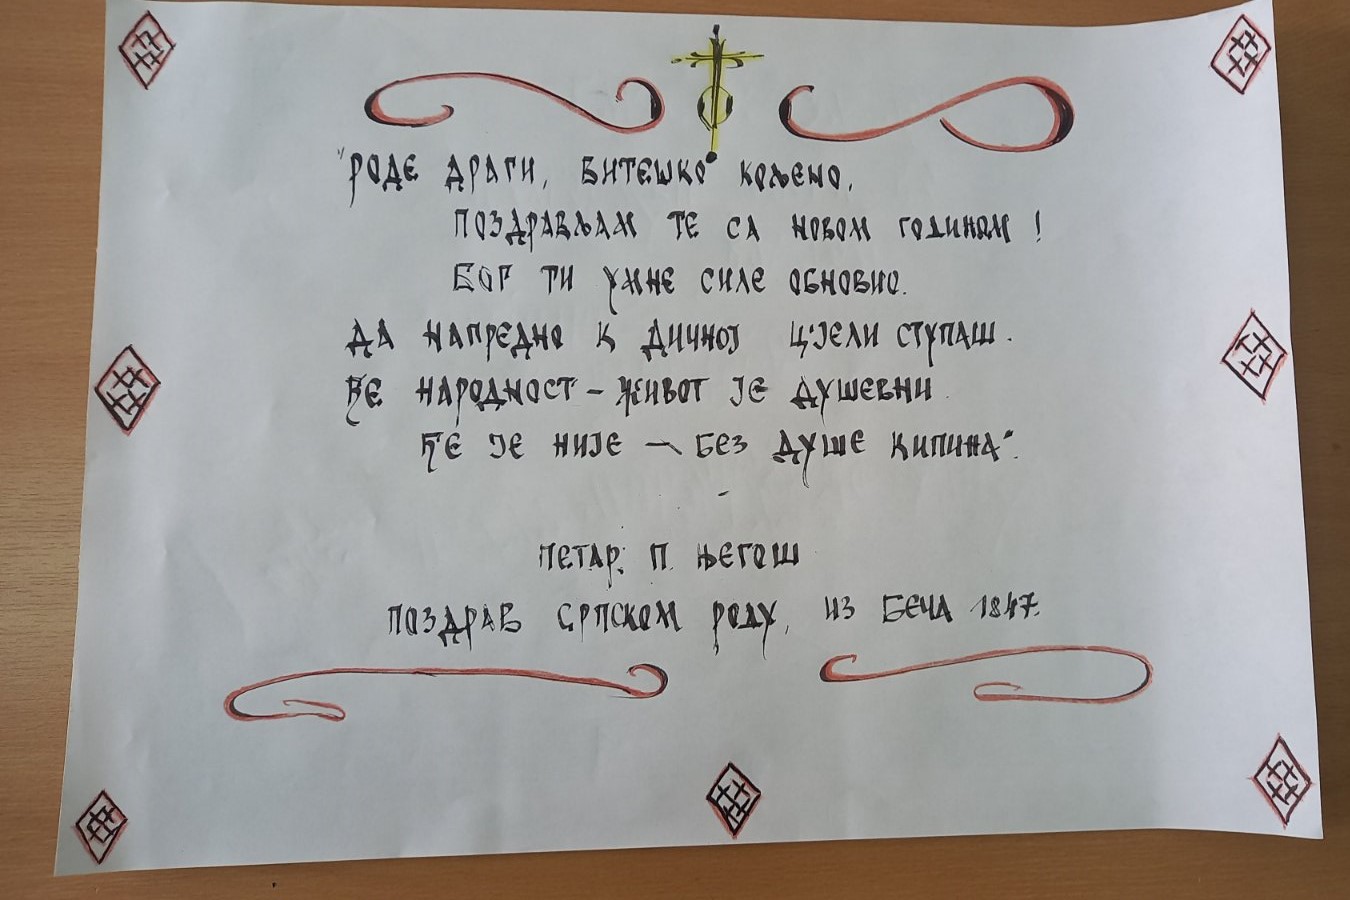 "РОДЕ ДРАГИ, ВИТЕШКО КОЉЕНО,
ПОЗДРАВЉАМ ТЕ СА НОВОМ ГОДИНОМ!
БОГ ТИ УМНЕ СИЛЕ ОБНОВИО.
ДА НАПРЕДНО К ДИЧНОЈ ЦЈЕЛИ СТУПАШ.
ЂЕ НАРОДНОСТ - ЖИВОТ ЈЕ ДУШЕВНИ
ЂЕ ЈЕ НИЈЕ - БЕЗ ДУШЕ КИПИНА".
ПЕТАР. П. ЊЕГОШ
ПОЗДРАВ СРПСКОМ РОДУ, ИЗ БЕЧА 1847.